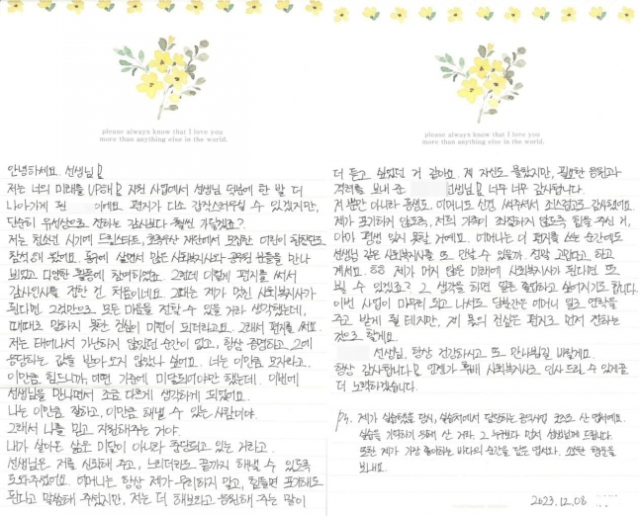 please always know that I love you
more than anything else in the world.
안녕하세요. 선생님
저는 너의 미래를 UP해 지원 사업에서 선생님 덕분에 한 발 더
나아가게 된 이에요. 편지가 다소 갑작스러우실 수 있겠지만,
단순히 유선상으로 전하는 감사보다 훨씬 가닿겠죠?
저는 청소년 시기에 드림스타트, 초록우산 재단에서 모집한 어린이
참석해 왔어요. 동네에 살면서 많은 사회복지사와 공무원 분들을 만나
뵈었고 다양한 활동에 참여하였죠. 그런데 이렇게 편지를 써서
감사인사를 전한 건 처음이네요. 그때는 제가 멋진 사회복지사가
된다면 그것만으로, 모든 마음을 전할 수 있을 거라 생각했는데,
때때로 말하지 못한 진심이 미련이 되더라고요. 그래서 편지를 써요.
저는 태어나서 가난하지 않았던 순간이 없고, 항상 증명하고, 그에
응당하는 값을 받아 오지 않았나 싶어요. 너는 이만큼 모자라고,
이만큼 힘드니까, 어떤 기준에 미달되어야만 했는데. 이번에
선생님을 만나면서 조금 다르게 생각하게 되었어요.
나는 이만큼 잘하고, 이만큼 해낼 수 있는 사람이야.
그래서 나를 믿고 지원해주는 거야.
내가 살아온 삶은 미달이 아니라 충당되고 있는 거라고.
선생님은 저를 신뢰해 주고, 느리더라도 끝까지 해낼 수 있도록
도와주셨어요. 어머니는 항상 제가 무리하지 말고, 힘들면 포기해도
된다고 말씀해 주셨지만, 저는 더 해보라고 응원해 주는 말이
please always know that I love you
more than anything else in the world.
더 듣고 싶었던 거 같아요. 제 자신도 몰랐지만, 필요한 응원과
격려를 보내 준 선생님 너무 너무 감사합니다.
제 뿐만 아니라 동생도, 어머니도 신경 써주셔서 최선적으로 감사했어요.
제가 포기하지 않도록, 저희 가족이 좌절하지 않도록 힘을 주신 거,
아마 평생 잊지 못할 거예요. 어머니는 더 편지를 쓰는 순간에도
선생님 같은 사회복지사를 또 만날 수 있을까. 정말 고맙다고 하고
계셔요. ㅎㅎ 제가 머지 않은 미래에 사회복지사가 된다면 또
뵐 수 있겠죠? 그 생각을 하면 얼른 졸업하고 싶어지기도 합니다.
이번 사업이 마무리 되고 나서도 당분간은 어머니 일로 연락을
주고 받게 될 테지만, 제 몫의 진심은 편지로 먼저 전하는
것으로 할게요.
선생님, 항상 건강하시고 또 만나뵙길 바랄게요.
항상 감사합니다 언젠가 꼭 사회복지사로 인사 드릴 수 있게끔
더 노력하겠습니다.
P.s. 제가 실습했을 당시, 실습처에서 담당하는 공익사업 굿즈로 산 엽서예요.
실습을 기억하기 위해 산 거라 그 누구보다 먼저 선생님께 드립니다.
또한 제가 가장 좋아하는 바다의 순간을 담은 엽서와. 소소한 행운을
보내요.
2023.12.08